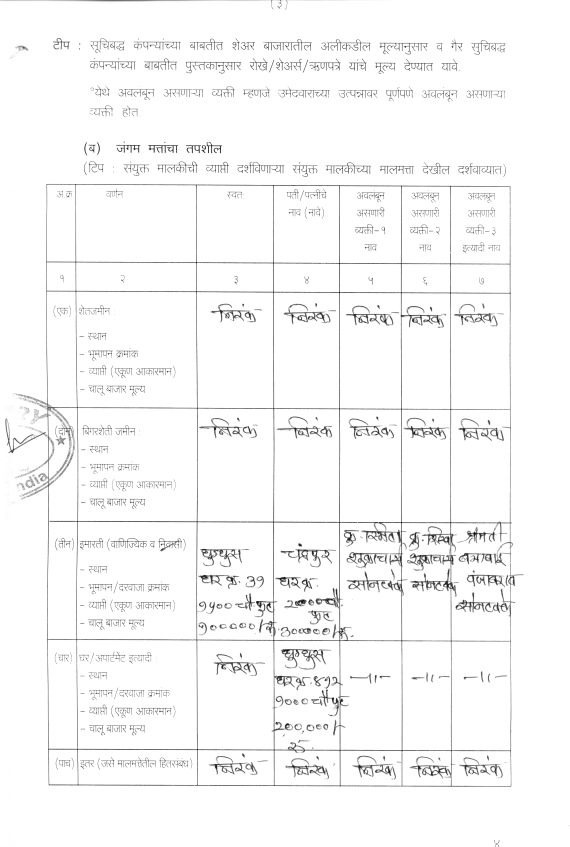 (३)
टीप : सूचिबद्ध कंपन्यांच्या बाबतीत शेअर बाजारातील अलीकडील मूल्यानुसार व गैर सुचिबद्ध
कंपन्यांच्या बाबतीत पुस्तकानुसार रोखे/शेअर्स/ऋणपत्रे यांचे मूल्य देण्यात यावे.
*येथे अवलबून असणाऱ्या व्यक्ती म्हणजे उमेदवाराच्या उत्पन्नावर पूर्णपणे अवलबून असणाऱ्या
व्यक्ती होत
(ब) जंगम मत्तांचा तपशील
(टिप : संयुक्त मालकीची व्याप्ती दर्शविणाऱ्या संयुक्त मालकीच्या मालमत्ता देखील दर्शवाव्यात)
अ.क्र वर्णन स्वतः पती/पत्नीचे नाव (नावे) अवलबून असणारी व्यक्ती-१ नाव अवलबून असणारी व्यक्ती-२ नाव अवलबून असणारी व्यक्ती-३ इत्यादी नाव
१ २ ३ ४ ५ ६ ७
(एक) शेतजमीन : निरंक निरंक निरंक निरंक निरंक
- स्थान
- भूमापन क्रमांक
- व्याप्ती (एकूण आकारमान)
- चालू बाजार मूल्य
(दोन) बिगरशेती जमीन : निरंक निरंक निरंक निरंक निरंक
- स्थान
- भूमापन क्रमांक
- व्याप्ती (एकूण आकारमान)
- चालू बाजार मूल्य
(तीन) इमारती (वाणिज्यिक व निवासी) घुग्घुस चंद्रपुर
- स्थान
- भूमापन/दरवाजा क्रमांक घर क्र. 39 घर क्र.
- व्याप्ती (एकूण आकारमान) १५०० चौ फुट 2000 चौ फुट
- चालू बाजार मूल्य १०००००/- रु 300000/- रु.
(चार) घर/अपार्टमेंट इत्यादी निरंक घुग्घुस
- स्थान घर क्र. ४१२ -॥- -॥- -॥-
- भूमापन/दरवाजा क्रमांक १००० चौ फुट
- व्याप्ती (एकूण आकारमान)
- चालू बाजार मूल्य 200,000/- रु.
(पाच) इतर (जसे मालमत्तेतील हितसंबध) निरंक निरंक निरंक निरंक निरंक
४